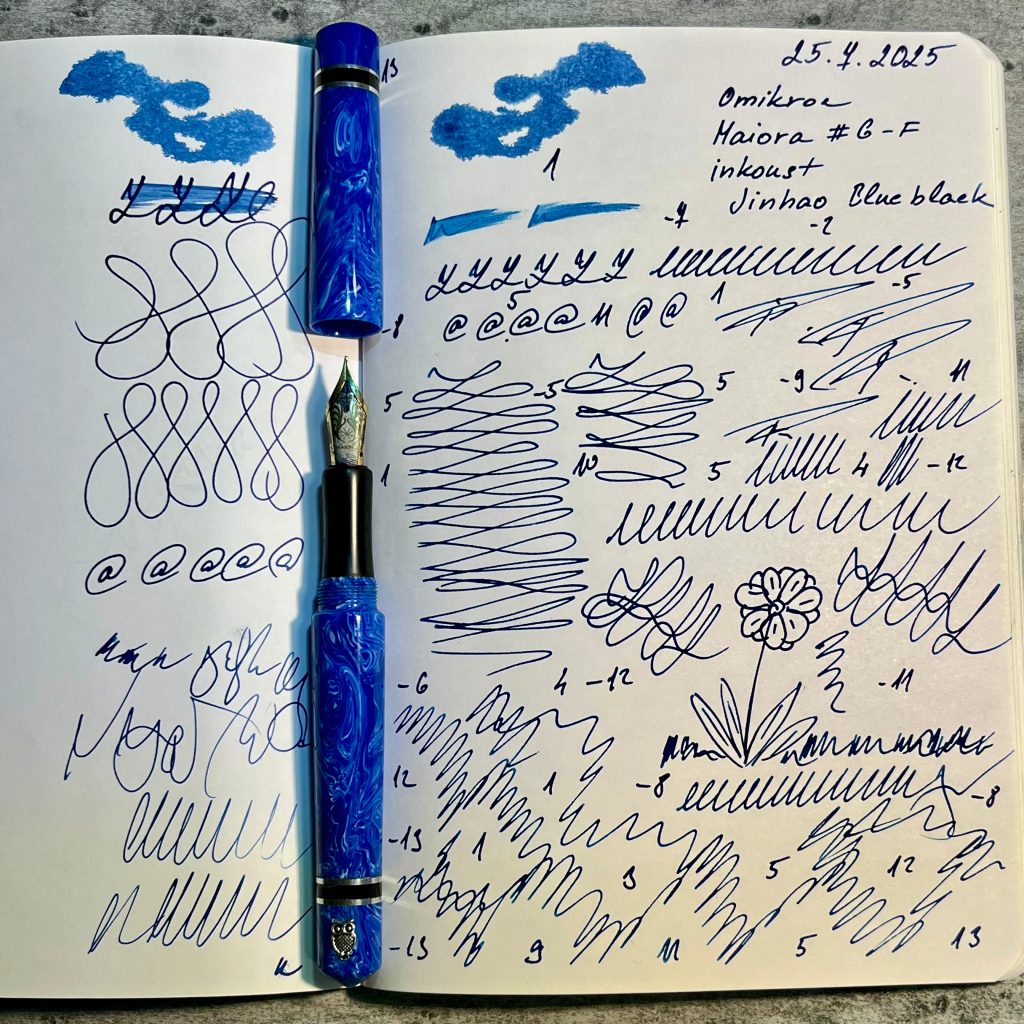 13
25.7.2025
Omikron
Maiora #6-F
inkoust
Jinhao Blue black
1
-7
-2
5
1
-5
@ @ @ @ 11 @ @
-8
5
-5
5
-9
11
1
10
5
4
-12
-6
4
-12
-11
12
1
-8
-8
-13
1
9
5
12
-13
9
11
5
13
@ @ @ @ @